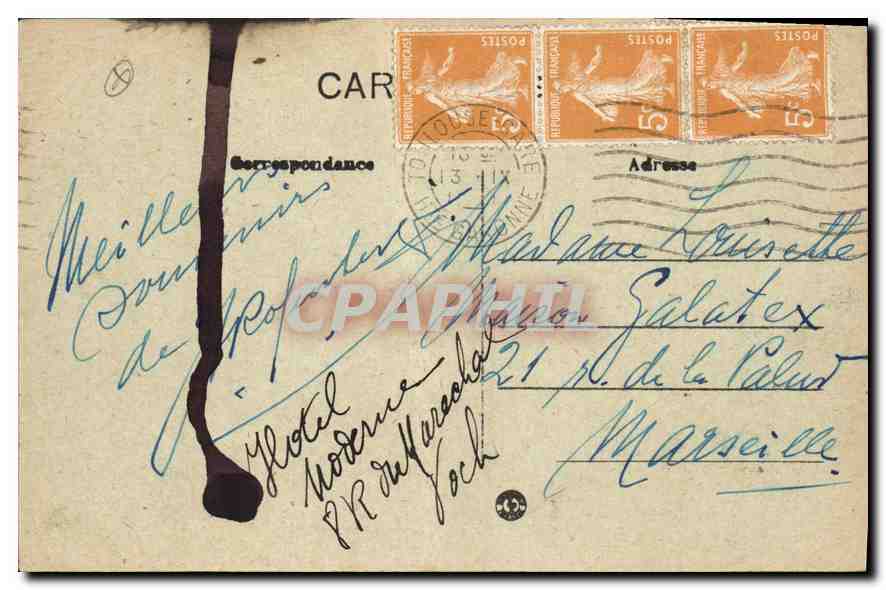 CAR
REPUBLIQUE FRANÇAISE POSTES 5c
REPUBLIQUE FRANÇAISE POSTES 5c
REPUBLIQUE FRANÇAISE POSTES 5c
TOULOUSE GARE
13 - IX
GARONNE
Correspondance
Adresse
Meilleurs
souvenirs
de
Madame Louisette
Maison Galatex
21 r. de la Palud
Marseille
CPAPHIL
Hotel
Moderne
8 R du Marechal
Foch